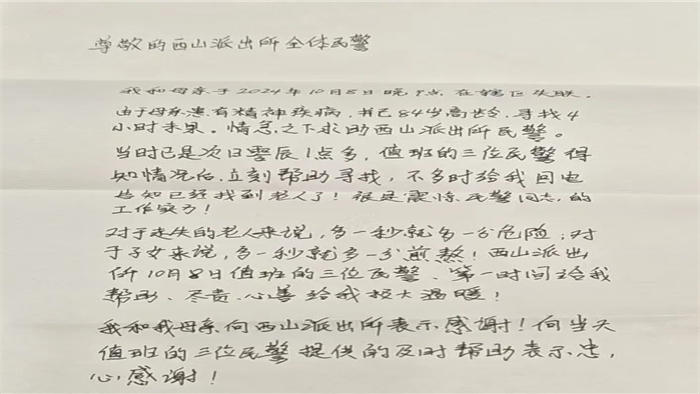 尊敬的西山派出所全体民警
我和母亲于2024年10月8日晚9点在辖区失联。
由于母亲患有精神疾病,并已84岁高龄、寻找4
小时未果。情急之下求助西山派出所民警。
当时已是次日零辰1点多,值班的三位民警得
知情况后立刻帮助寻找,不多时给我回电
告知已经找到老人了!很是震惊民警同志的
工作实力!
对于走失的老人来说,多一秒就多一分危险;对
于子女来说,多一秒就多一分煎熬!西山派出
所10月8日值班的三位民警、第一时间给我
帮助、尽责、心善给我极大温暖!
我和我母亲向西山派出所表示感谢!向当天
值班的三位民警提供的及时帮助表示忠,
心感谢!